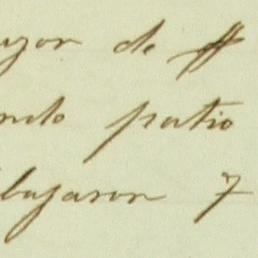 ayor de
ndo patio
bajaron 7